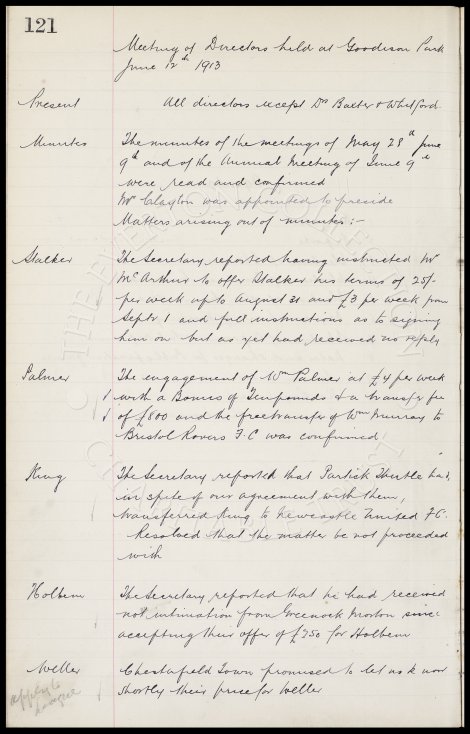 121
Meeting of Directors held at Goodison Park
June 12th 1913
Present All directors except Dr Baxter & Whitford.
Minutes The minutes of the meetings of May 28th June
9th and of the Annual Meeting of June 9th
were read and confirmed
Mr Clayton was appointed to preside
Matters arising out of minutes:-
Stalker The Secretary reported having instructed Mr
McArthur to offer Stalker his terms of 25/-
per week up to August 31 and £3 per week from
Septr 1 and full instructions as to signing
him on but as yet had received no reply
Palmer The engagement of Wm Palmer at £4 per week
with a Bonus of Ten pounds & a transfer fee
of £800 and the free transfer of Wm Murray to
Bristol Rovers F.C was confirmed
King The Secretary reported that Partick Thistle had,
in spite of our agreement with them,
transferred King to Newcastle United F.C.
Resolved that the matter be not proceeded
with
Holbem The Secretary reported that he had received
not intimation from Greenock Morton since
accepting their offer of £350 for Holbem
Weller Chesterfield Town promised to let us know
shortly their price for Weller
apply to
league